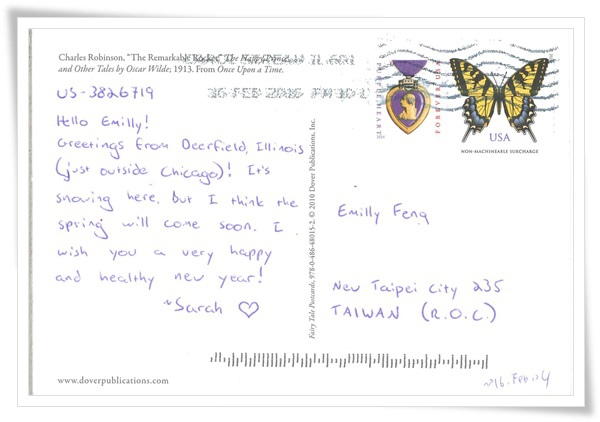 Charles Robinson, "The Remarkable Rocket," The Happy Prince
and Other Tales by Oscar Wilde; 1913. From Once Upon a Time.
16 FEB 2016 PM 10 L
US-3826719
Hello Emilly!
Greetings from Deerfield, Illinois
(just outside Chicago)! It's
snowing here, but I think the
spring will come soon. I
wish you a very happy
and healthy new year!
~Sarah ♡
www.doverpublications.com
Fairy Tale Postcards, 978-0-486-48015-2. © 2010 Dover Publications, Inc.
PURPLE HEART
FOREVER USA
USA
NON-MACHINEABLE SURCHARGE
Emilly Feng
New Taipei City 235
TAIWAN (R.O.C.)